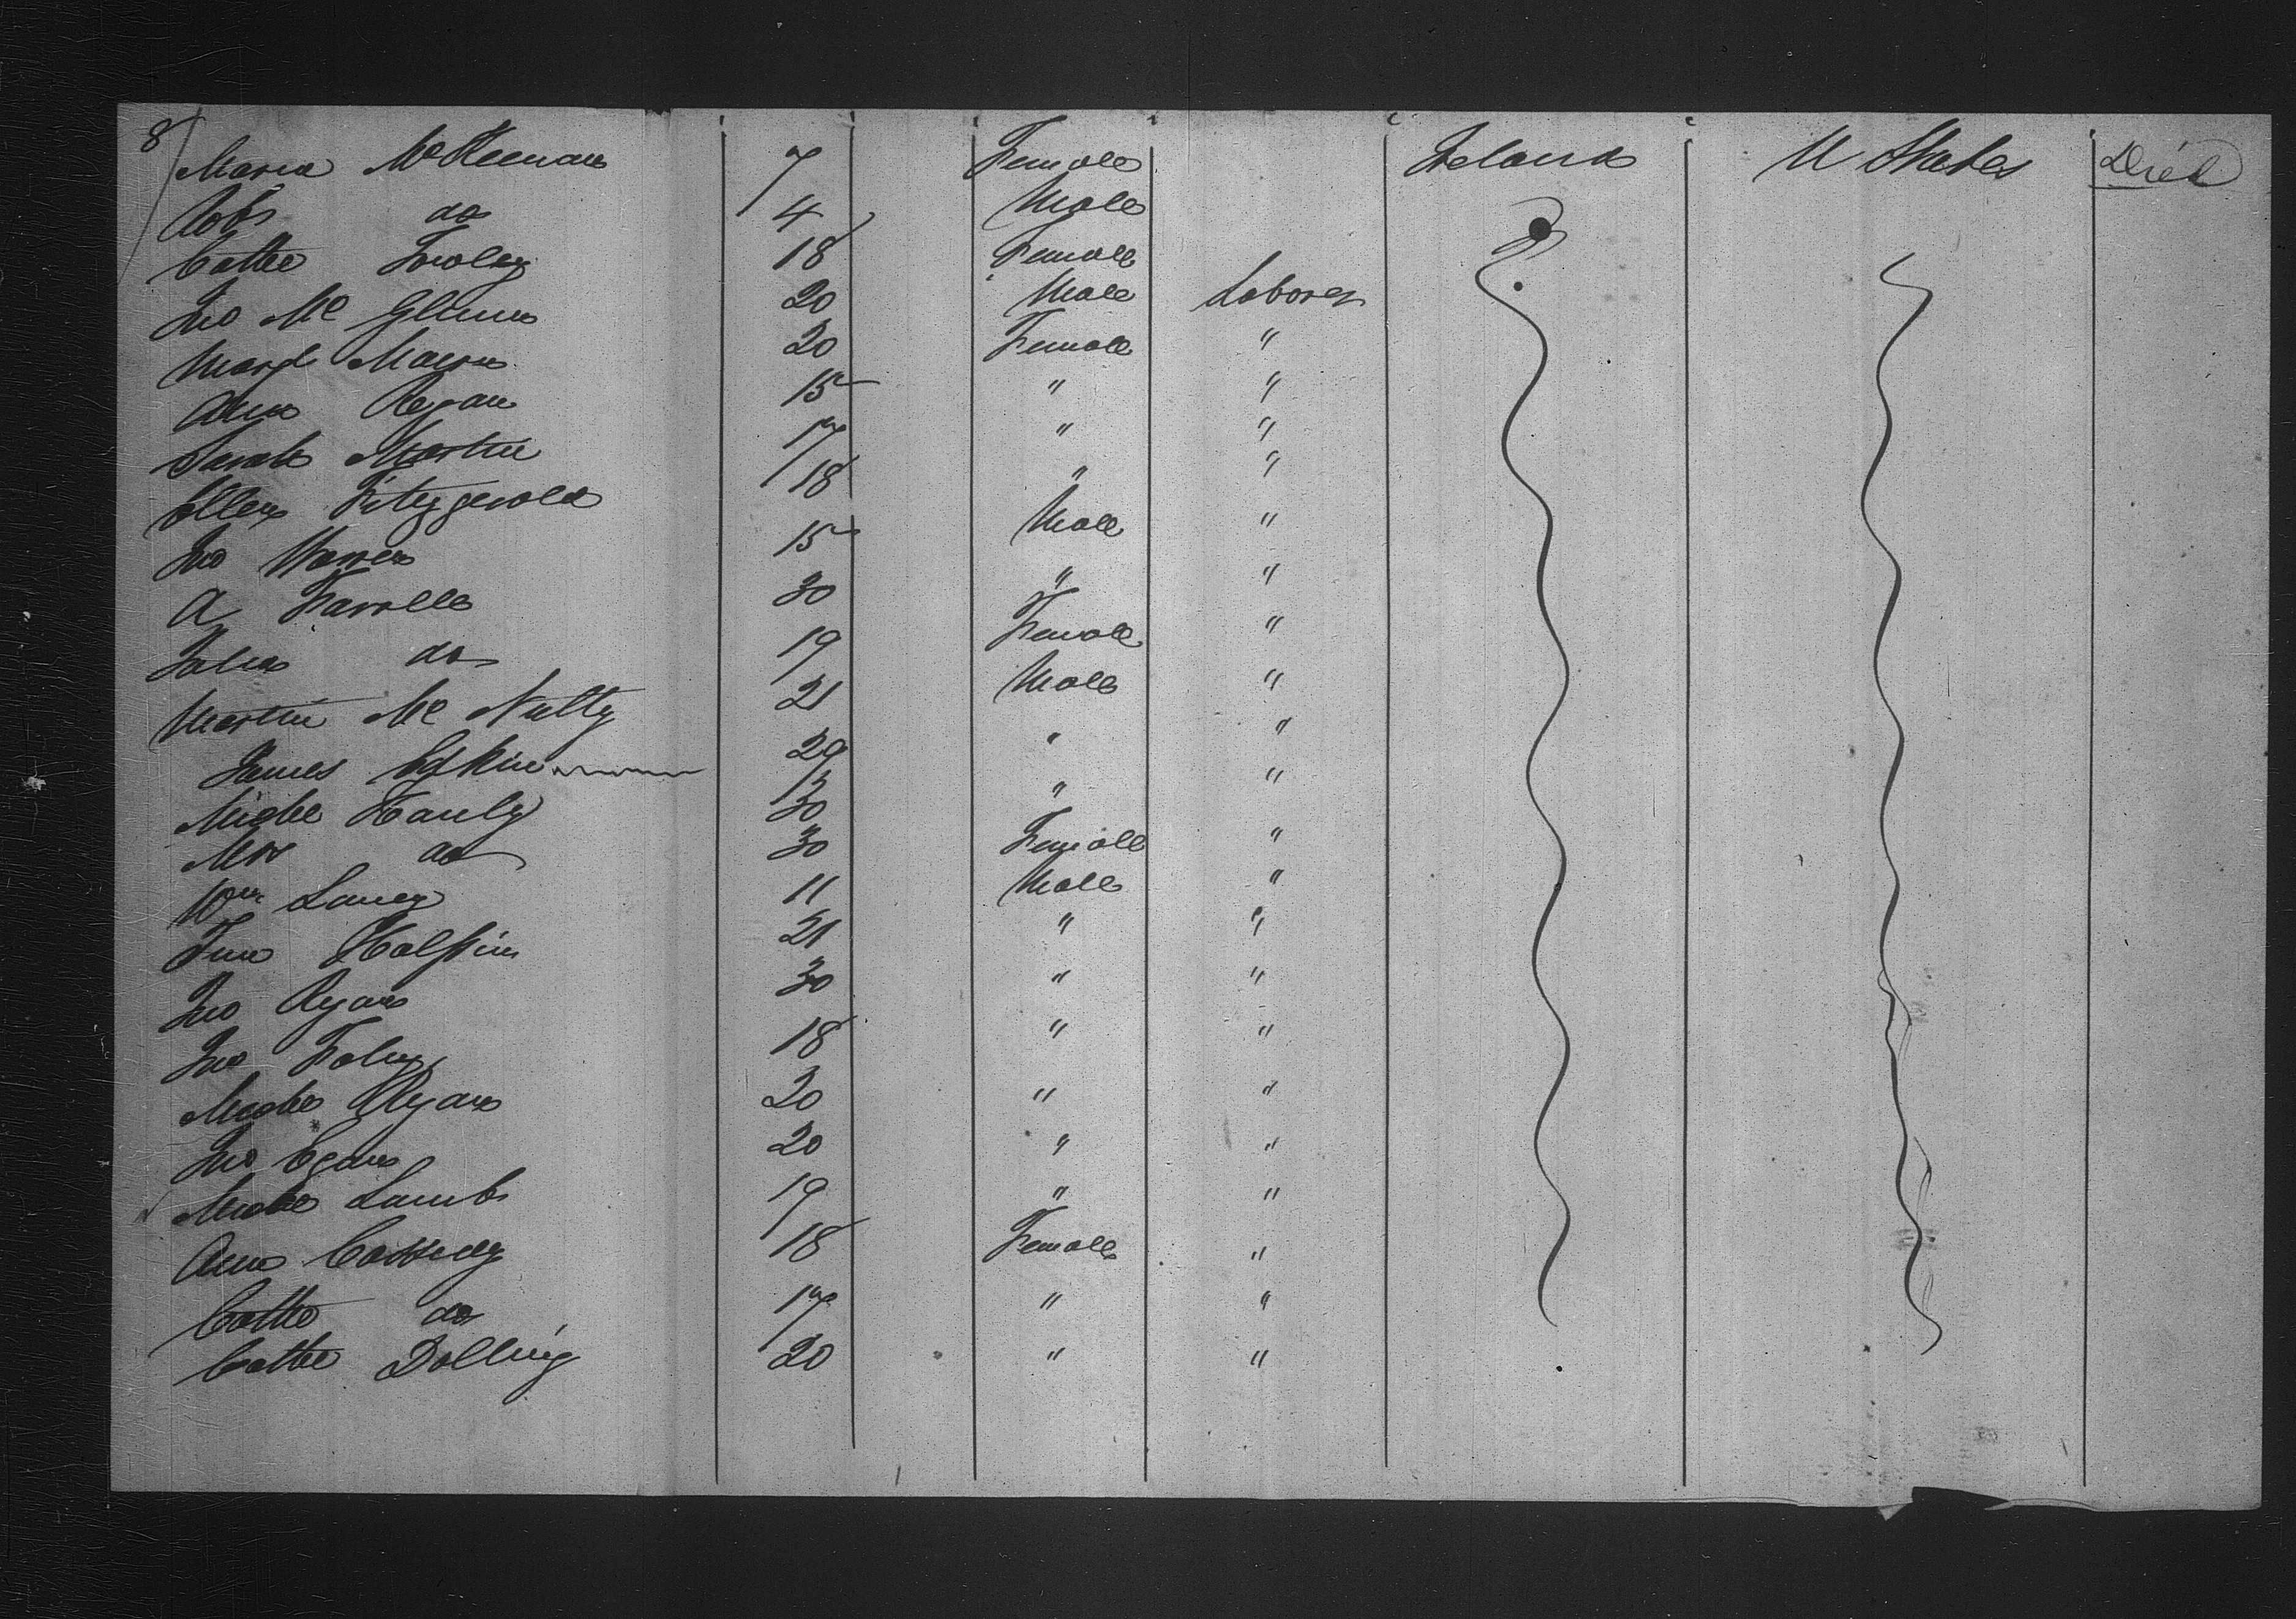 8
Maria McKeenan 7 Female Ireland U States Died
Robt do 4 Male
Cathe Fowley 18 Female
Jno Mc Glinn 20 Male Laborer
Margt 20 Female "
Ann Regan 15 " "
Sarah Martin 17 " "
Ellen Fitzgerald 18 " "
Jno 15 Male "
A Farrell 30 " "
Julia do 19 Female "
Martin Mc Nulty 21 Male "
James 29 " "
Miche Hanly 30 " "
Mrs do 30 Female "
Wm Laney 11 Male "
Halpin 21 " "
Jno Ryan 30 " "
Jno Foley 18 " "
Miche Ryan 20 " "
Jno Egan 20 " "
Miche Lamb 19 " "
Ann Cassedy 18 Female "
Cathe do 17 " "
Cathe Dolling 20 " "